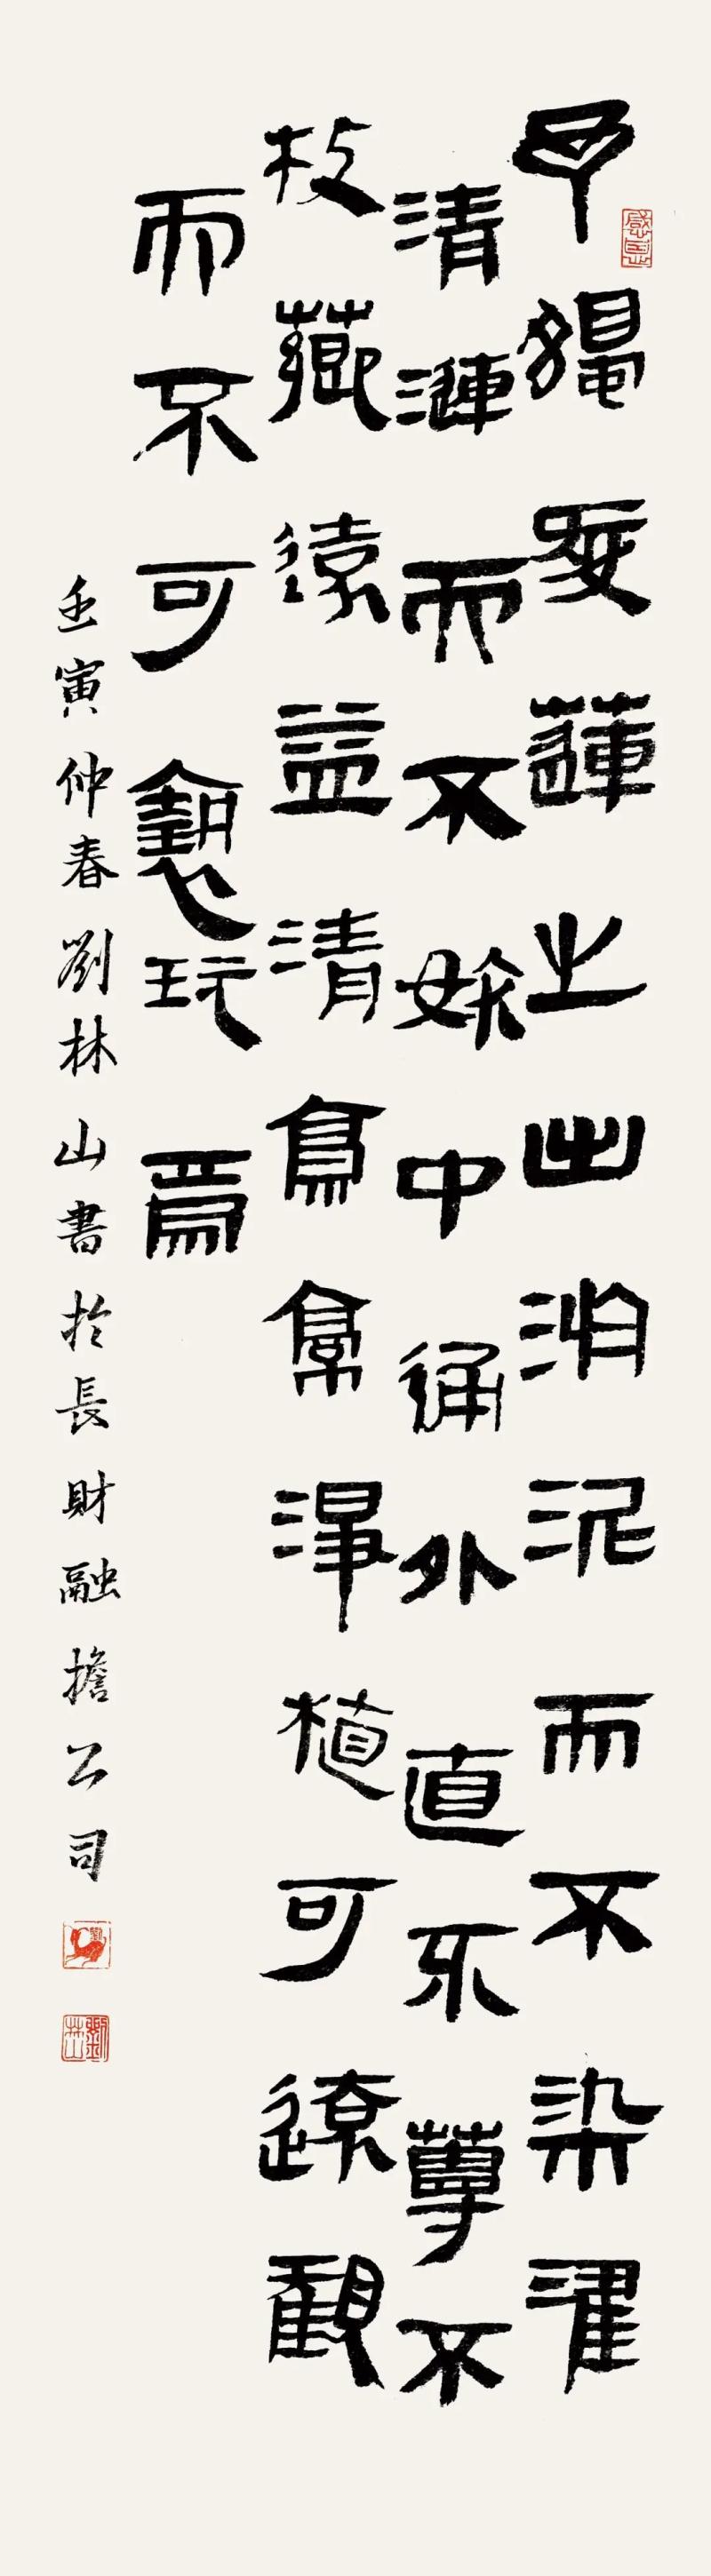 予獨愛蓮之出淤泥而不染濯
清漣而不妖中通外直不蔓不
枝薌遠益清亭亭淨植可遠觀
而不可褻玩焉
壬寅仲春劉林山書於長財融擔公司
感恩